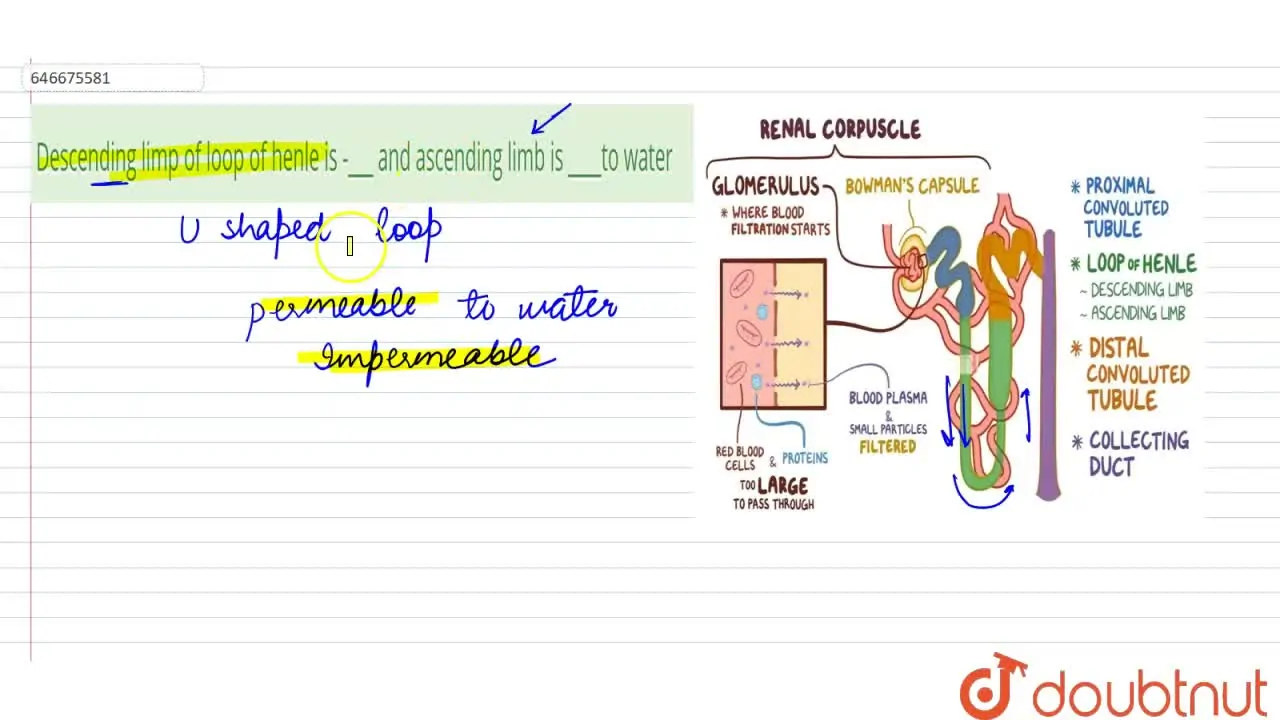 646675581
Descending limp of loop of henle is -__ and ascending limb is ___to water
U shaped loop
permeable to water
Impermeable
RENAL CORPUSCLE
GLOMERULUS
* WHERE BLOOD
FILTRATION STARTS
BOWMAN'S CAPSULE
RED BLOOD
CELLS
& PROTEINS
TOO LARGE
TO PASS THROUGH
BLOOD PLASMA
&
SMALL PARTICLES
FILTERED
* PROXIMAL
CONVOLUTED
TUBULE
* LOOP OF HENLE
~ DESCENDING LIMB
~ ASCENDING LIMB
* DISTAL
CONVOLUTED
TUBULE
* COLLECTING
DUCT
doubtnut